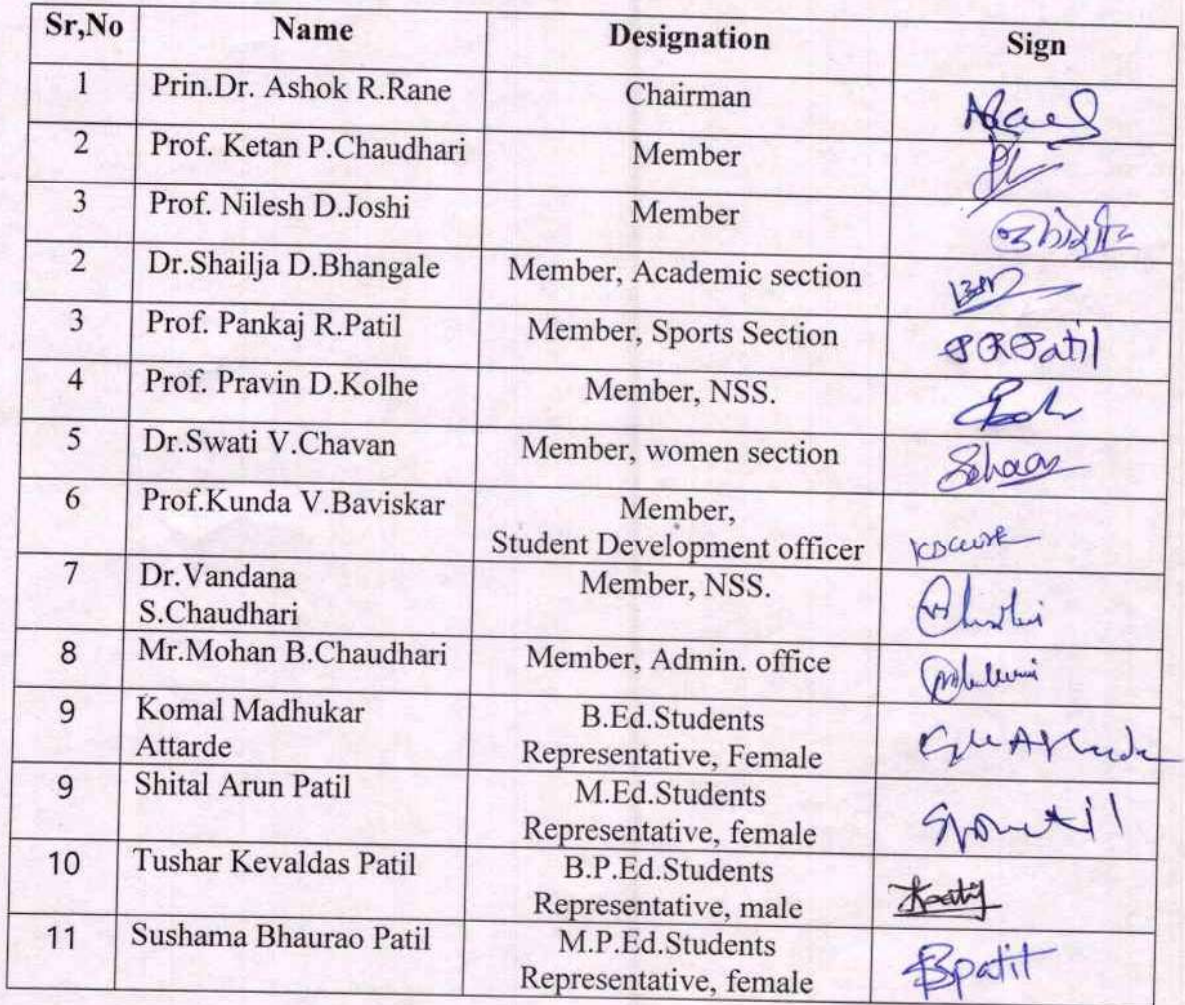 Sr,No Name Designation Sign
1 Prin.Dr. Ashok R.Rane Chairman
2 Prof. Ketan P.Chaudhari Member
3 Prof. Nilesh D.Joshi Member
2 Dr.Shailja D.Bhangale Member, Academic section
3 Prof. Pankaj R.Patil Member, Sports Section PRPatil
4 Prof. Pravin D.Kolhe Member, NSS.
5 Dr.Swati V.Chavan Member, women section
6 Prof.Kunda V.Baviskar Member,
Student Development officer
7 Dr.Vandana Member, NSS.
S.Chaudhari
8 Mr.Mohan B.Chaudhari Member, Admin. office
9 Komal Madhukar B.Ed.Students
Attarde Representative, Female
9 Shital Arun Patil M.Ed.Students
Representative, female
10 Tushar Kevaldas Patil B.P.Ed.Students
Representative, male
11 Sushama Bhaurao Patil M.P.Ed.Students
Representative, female